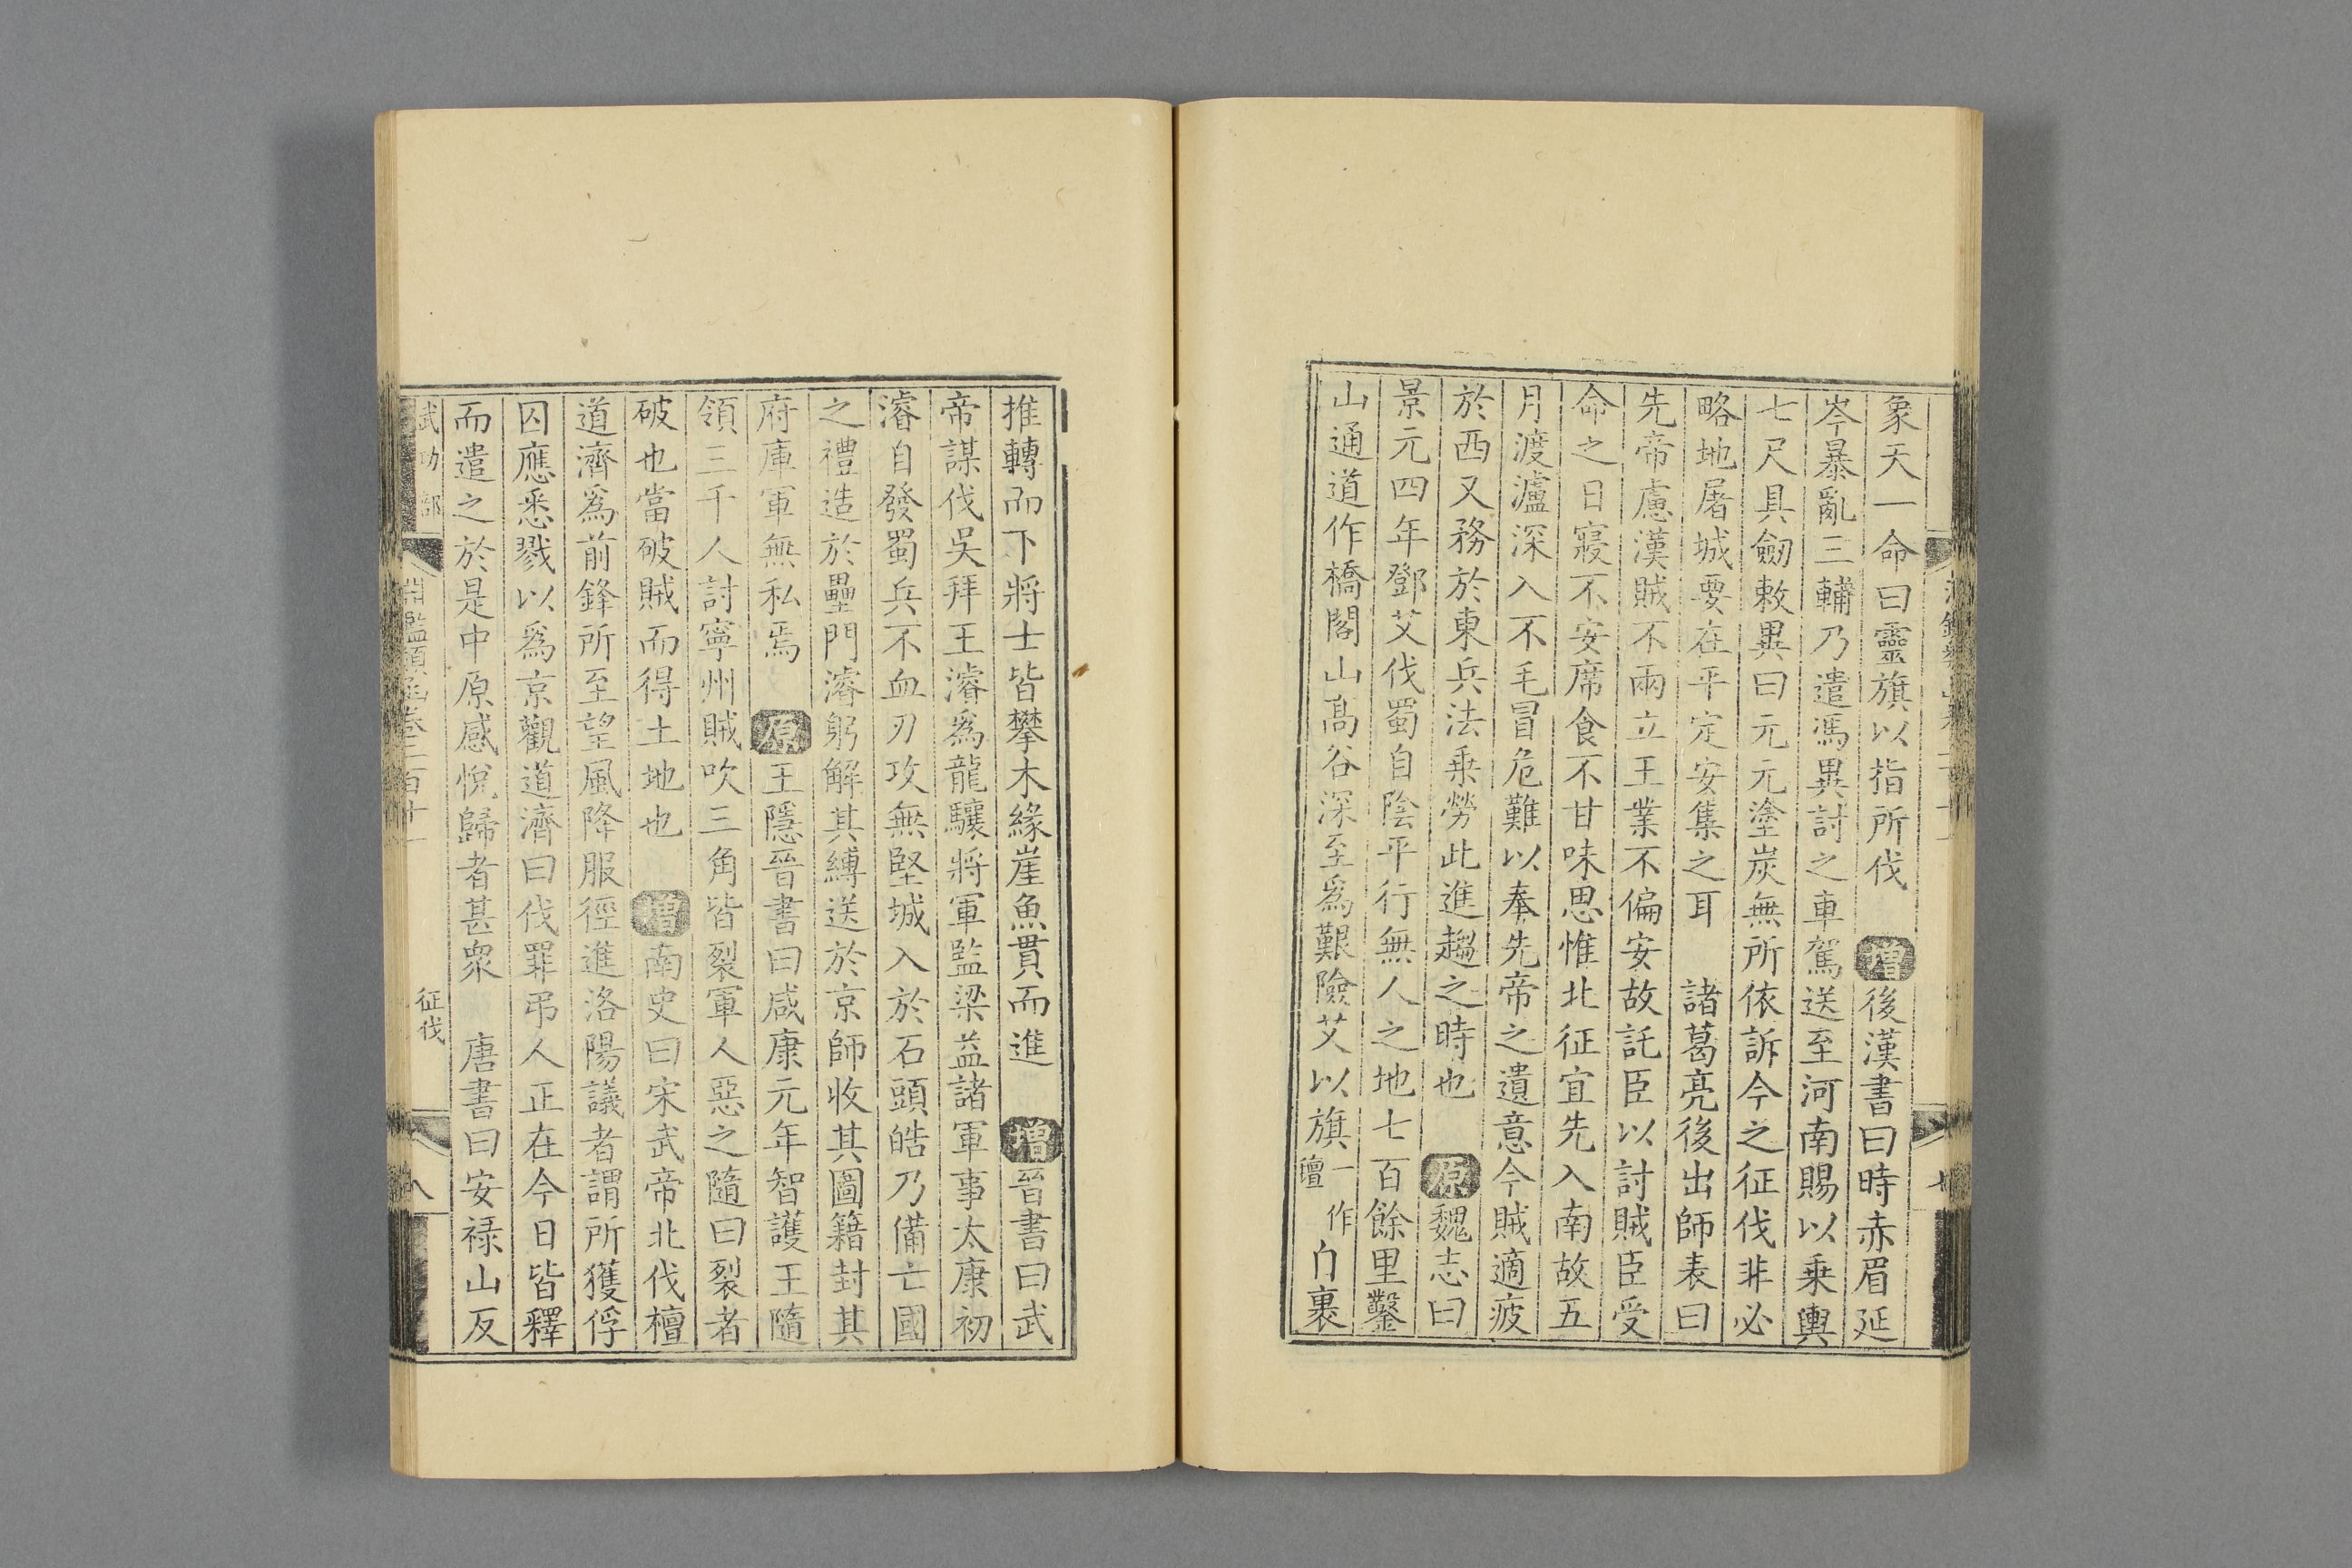 象天一命曰靈旗以指所伐 增 後漢書曰時赤眉延
岑暴亂三輔乃遣馮異討之車駕送至河南賜以乗輿
七尺具劒敕異曰元元塗炭無所依訴今之征伐非必
略地屠城要在平定安集之耳 諸葛亮後出師表曰
先帝慮漢賊不兩立王業不偏安故託臣以討賊臣受
命之日寢不安席食不甘味思惟北征宜先入南故五
月渡瀘深入不毛冒危難以奉先帝之遺意今賊適疲
於西又務於東兵法乗勞此進趨之時也 原 魏志曰
景元四年鄧艾伐蜀自陰平行無人之地七百餘里鑿
山通道作橋閣山髙谷深至爲艱險艾以旗一作氊自裹
推轉而下將士皆攀木緣崖魚貫而進 增 晉書曰武
帝謀伐吳拜王濬爲龍驤將軍監梁益諸軍事太康初
濬自發蜀兵不血刃攻無堅城入於石頭皓乃備亡國
之禮造於壘門濬躬解其縛送於京師收其圖籍封其
府庫軍無私焉 原 王隱晉書曰咸康元年智護王隨
領三千人討寧州賊吹三角皆裂軍人惡之隨曰裂者
破也當破賊而得土地也 增 南史曰宋武帝北伐檀
道濟爲前鋒所至望風降服徑進洛陽議者謂所獲俘
囚應悉戮以爲京觀道濟曰伐罪弔人正在今日皆釋
而遣之於是中原感悅歸者甚衆 唐書曰安禄山反
武功部 淵鑑類函卷二百十一 征伐 八